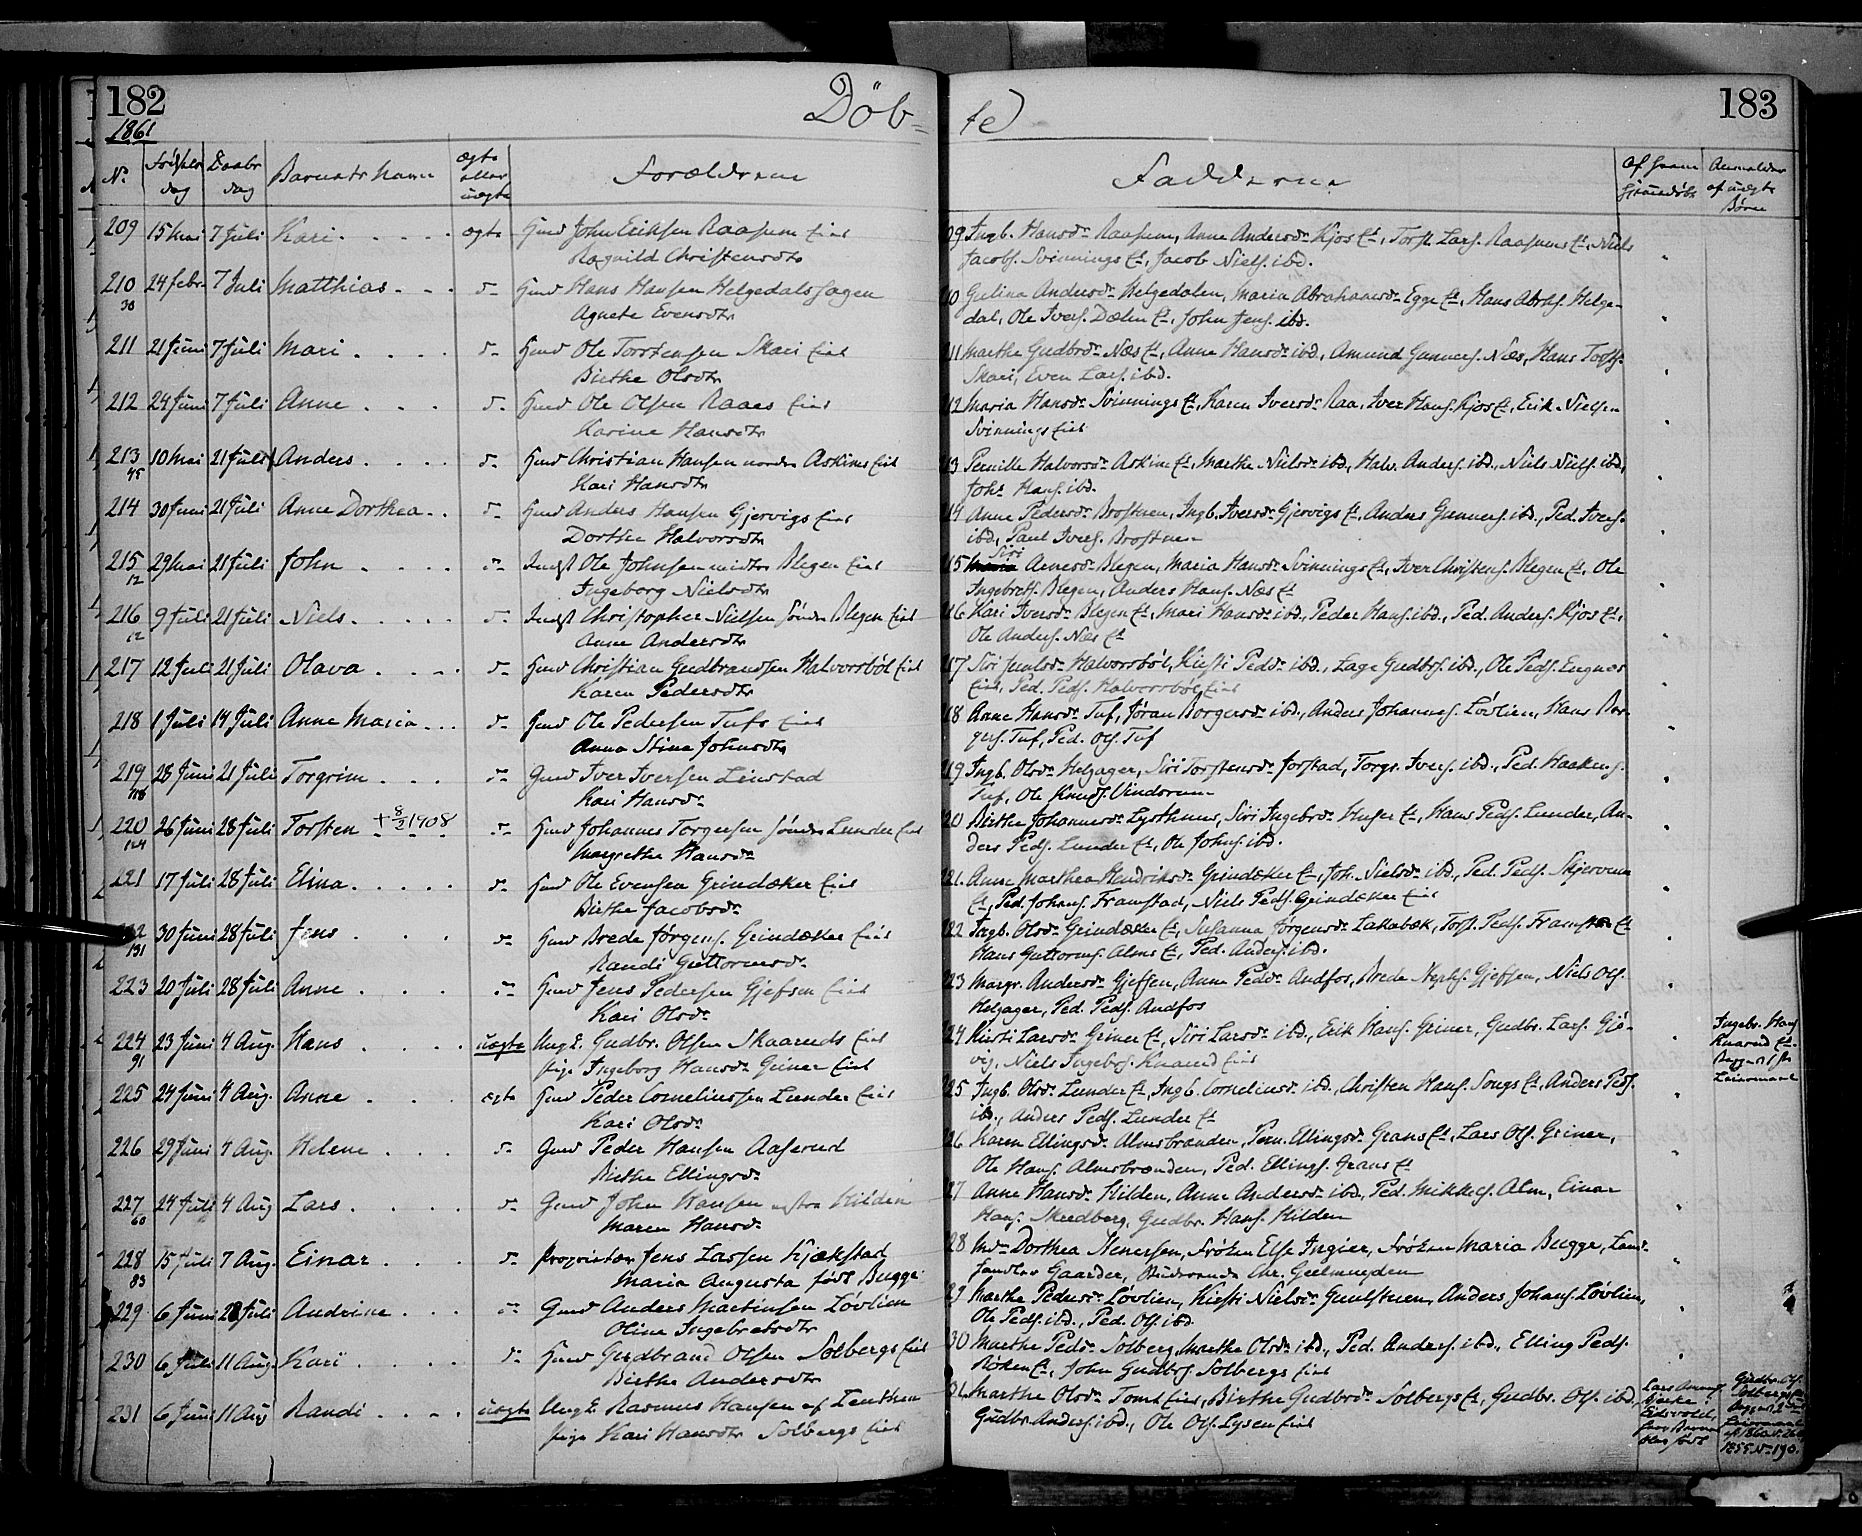 182
Døb-
te
183
1861
No Fødsels Daabs Barnets Navn ægte Forældrene
dag dag eller
uægte
Fadderne
Anmeldte
af uægte
Børn
209 15 Mai 7 Juli Kari ægte Gmd John Eriksen Raasum Eiet
Ragnild Christensdtr
210 24 Febr 7 Juli Matthias d- Gmd Hans Hansen
30 Agnete Evensdtr
211 21 Juni 7 Juli Mari d- Gmd Ole Torstensen Skari Eiet
Birthe Olsdtr
212 24 Juni 7 Juli Anne d- Gmd Ole Olsen Raaes Eiet
Karine Hansdtr
213 10 Mai 21 Juli Anders d- Gmd Christian Hansen nordre Askims Eiet
45 Kari Hansdtr
214 30 Juni 21 Juli Anne Dorthea d- Gmd Anders Hansen Gjervigs Eiet
Dorthe Halvorsdtr
215 29 Mai 21 Juli John d- Indst Ole Johnsen midtr Blegen Eiet
12 Ingeborg Nielsdtr
216 9 Juli 21 Juli Niels d- Indst Christopher Nielsen søndr Blegen Eiet
12 Anne Andersdtr
217 12 Juli 21 Juli Olava d- Gmd Christian Gudbrandsen Halvorsbøl Eiet
Karen Pedersdtr
218 1 Juli 14 Juli Anne Maria d- Gmd Ole Pedersen Tufs Eiet
Anna Stina Johnsdtr
219 28 Juni 21 Juli Torgrim d- Gmd Iver Iversen Linstad
Kari Hansdr
220 26 Juni 28 Juli Torsten + 8/2 1908 d- Gmd Johannes Torgersen søndre Lunder Eiet
124 Margrethe Hansdr
221 17 Juli 28 Juli Elina d- Gmd Ole Evensen Grindaker Eiet
Birthe Jacobsdr
222 30 Juni 28 Juli Jens d- Gmd Brede Jørgens. Grindaker Eiet
131 Randi Guttormsdr
223 20 Juli 28 Juli Anne d- Gmd Jens Pedersen Gjefsen Eiet
Kari Olsdr
224 23 Juni 4 Aug. Hans uægte Ungk. Gudbr. Olsen Skaaruds Eiet
91 Pige Ingeborg Hansdr Griner Eiet
225 24 Juni 4 Aug. Anne ægte Gmd Peder Corneliussen Lunder Eiet
Kari Olsdr
226 29 Juni 4 Aug. Helene d- Gmd Peder Hansen Aaserud
Birthe Ellingsdr
227 24 Juli 4 Aug Lars d- Gmd John Hansen Hilden
60 Maren Hansdr
228 15 Juli 7 Aug. Einar d- Proprietær Jens Larsen Kjækstad
83 Maria Augusta født Bugge
229 6 Juni 28 Juli Andrine d- Gmd Anders Martinsen Løvlien
Oline Ingebretsdtr
230 6 Juli 11 Aug. Kari d- Gmd Gudbrand Olsen Solbergs Eiet
Birthe Andersdtr
231 6 Juni 11 Aug Randi uægte Ungk. Rasmus Hansen af
Pige Kari Hansdtr Solbergs Eiet
09 Ingb. Hansdr Raasum, Anne Andersdr Kjos Et, Torst. Lars. Raasums Et, Niels
Jacobs. Svinnings Et, Jacob Niels. ibd.
10 Gulina Andersdr Helgedalen, Maria Abrahamsdr Egge Et, Hans Abrhs. Helge-
dal, Ole Ivers. Dælen Et, John Jens. ibd.
11 Marthe Gudbrdr Næs Et, Anne Hansdr ibd, Amund Gunners. Næs, Hans Torsts.
Skari, Even Lars. ibd.
12 Maria Hansdr Svinnings Et, Karen Iversdr Raa, Iver Hans. Kjos Et, Erik Nielsen
Svinnings Eiet
13 Pernille Halvorsdr Askim Et, Marthe Nielsdr ibd, Halv. Anders. ibd., Niels Niels. ibd,
Johs Hans. ibd.
14 Anne Pedersdr Brostuen, Ingb. Iversdr Gjervigs Et, Anders Gunners. ibd., Ped. Ivers.
ibd., Paul Ivers. Brostuen
15 Siri Arnesdr Blegen, Maria Hansdr Svinnings Et, Iver Christens. Blegen Et, Ole
Ingebrets. Blegen, Anders Hans. Næs Et
16 Kari Iversdr Blegen Et, Mari Hansdr ibd, Peder Hans. ibd., Ped. Anders. Kjos Et,
Ole Anders. Næs Et
17 Siri Halvorsbøl, Kirsti Pedsdr ibd., Lage Gudbs. ibd., Ole Peds. Engnæs
Eiet, Ped. Peds. Halvorsbøl Eiet
18 Anne Hansdr Tuf, Jøran Borgersdr ibd., Anders Johannes. Løvlien, Hans Bor-
gers. Tuf, Ped. Ols. Tuf
19 Ingb. Olsdr Helgager, Siri Torstensdr Jorstad, Torgr. Ivers. ibd., Ped. Haakens.
Tuf, Ole Knuds. Vindorum
20 Birthe Johannesdr Lysthuus, Siri Ingebrdr Et, Hans Peds. Lunder, An-
ders Peds. Lunder Et, Ole Johns. ibd.
21 Anne Marthea Hendriksdr Grindaker Et, Joh. Nielsdr ibd., Ped. Peds. Skjervum
Et, Ped. Johans. Framstad, Niels Peds. Grindaker Eiet
22 Ingb. Olsdr Grindaker Et, Susanna Jørgensdr Lakabæk, Torst. Peds. Framst. Et
Hans Guttorms. Alms Et, Ped. Anders. ibd.
23 Margr. Andersdr Gjefsen, Anne Pedsdr Andfos, Brede Gjefsen, Niels Ols.
Helgager, Ped. Peds. Andfos
24 Kirsti Larsdr Griner Et, Siri Larsdr ibd., Erik Hans. Griner, Gudbr. Lars. Gjø-
vig, Niels Ingebs. Knarud Eiet
Ingebr. Hans.
Knarud Et.
Begges 1ste
Leiermaal
25 Ingb. Olsdr Lunder Et, Ingb. Corneliusdr ibd., Christen Hans. Songs Et, Anders Peds.
ibd., Anders Peds. Lunder Et
26 Karen Ellingsdr Almsbranden, Pern. Ellingsdr Grans Et, Lars Ols. Griner,
Ole Hans. Almsbranden, Ped. Ellings. Grans Et
27 Anne Hansdr Hilden, Anne Andersdr ibd., Ped. Mikkels. Alm, Einar
Hans. Gudbr. Hans. Hilden
28 Md Dorthea Frøken Else Ingier, Frøken Maria Bugge, Land-
handler Gaarder, Studerende Chr. Geelmuyden
29 Marthe Pedersdr Løvlien, Kirsti Nielsdr Anders Johans. Løvlien,
Ole Peds. ibd., Ped. Ols. ibd.
30 Marthe Pedsdr Solberg, Marthe Olsdr ibd., Ped. Anders. ibd., Elling Peds.
Røken Et, John Gudbs. Solbergs Eiet
31 Marthe Olsdr Tomt Eiet, Birthe Gudbrdr Solbergs Et, Gudbr. Ols. ibd.,
Gudbr. Anders. ibd., Ole Ols. Lysen Eiet
Eidsvold,
Gudbr. Ols.
Solbergs Et
Leiermaal
1855 No 190.